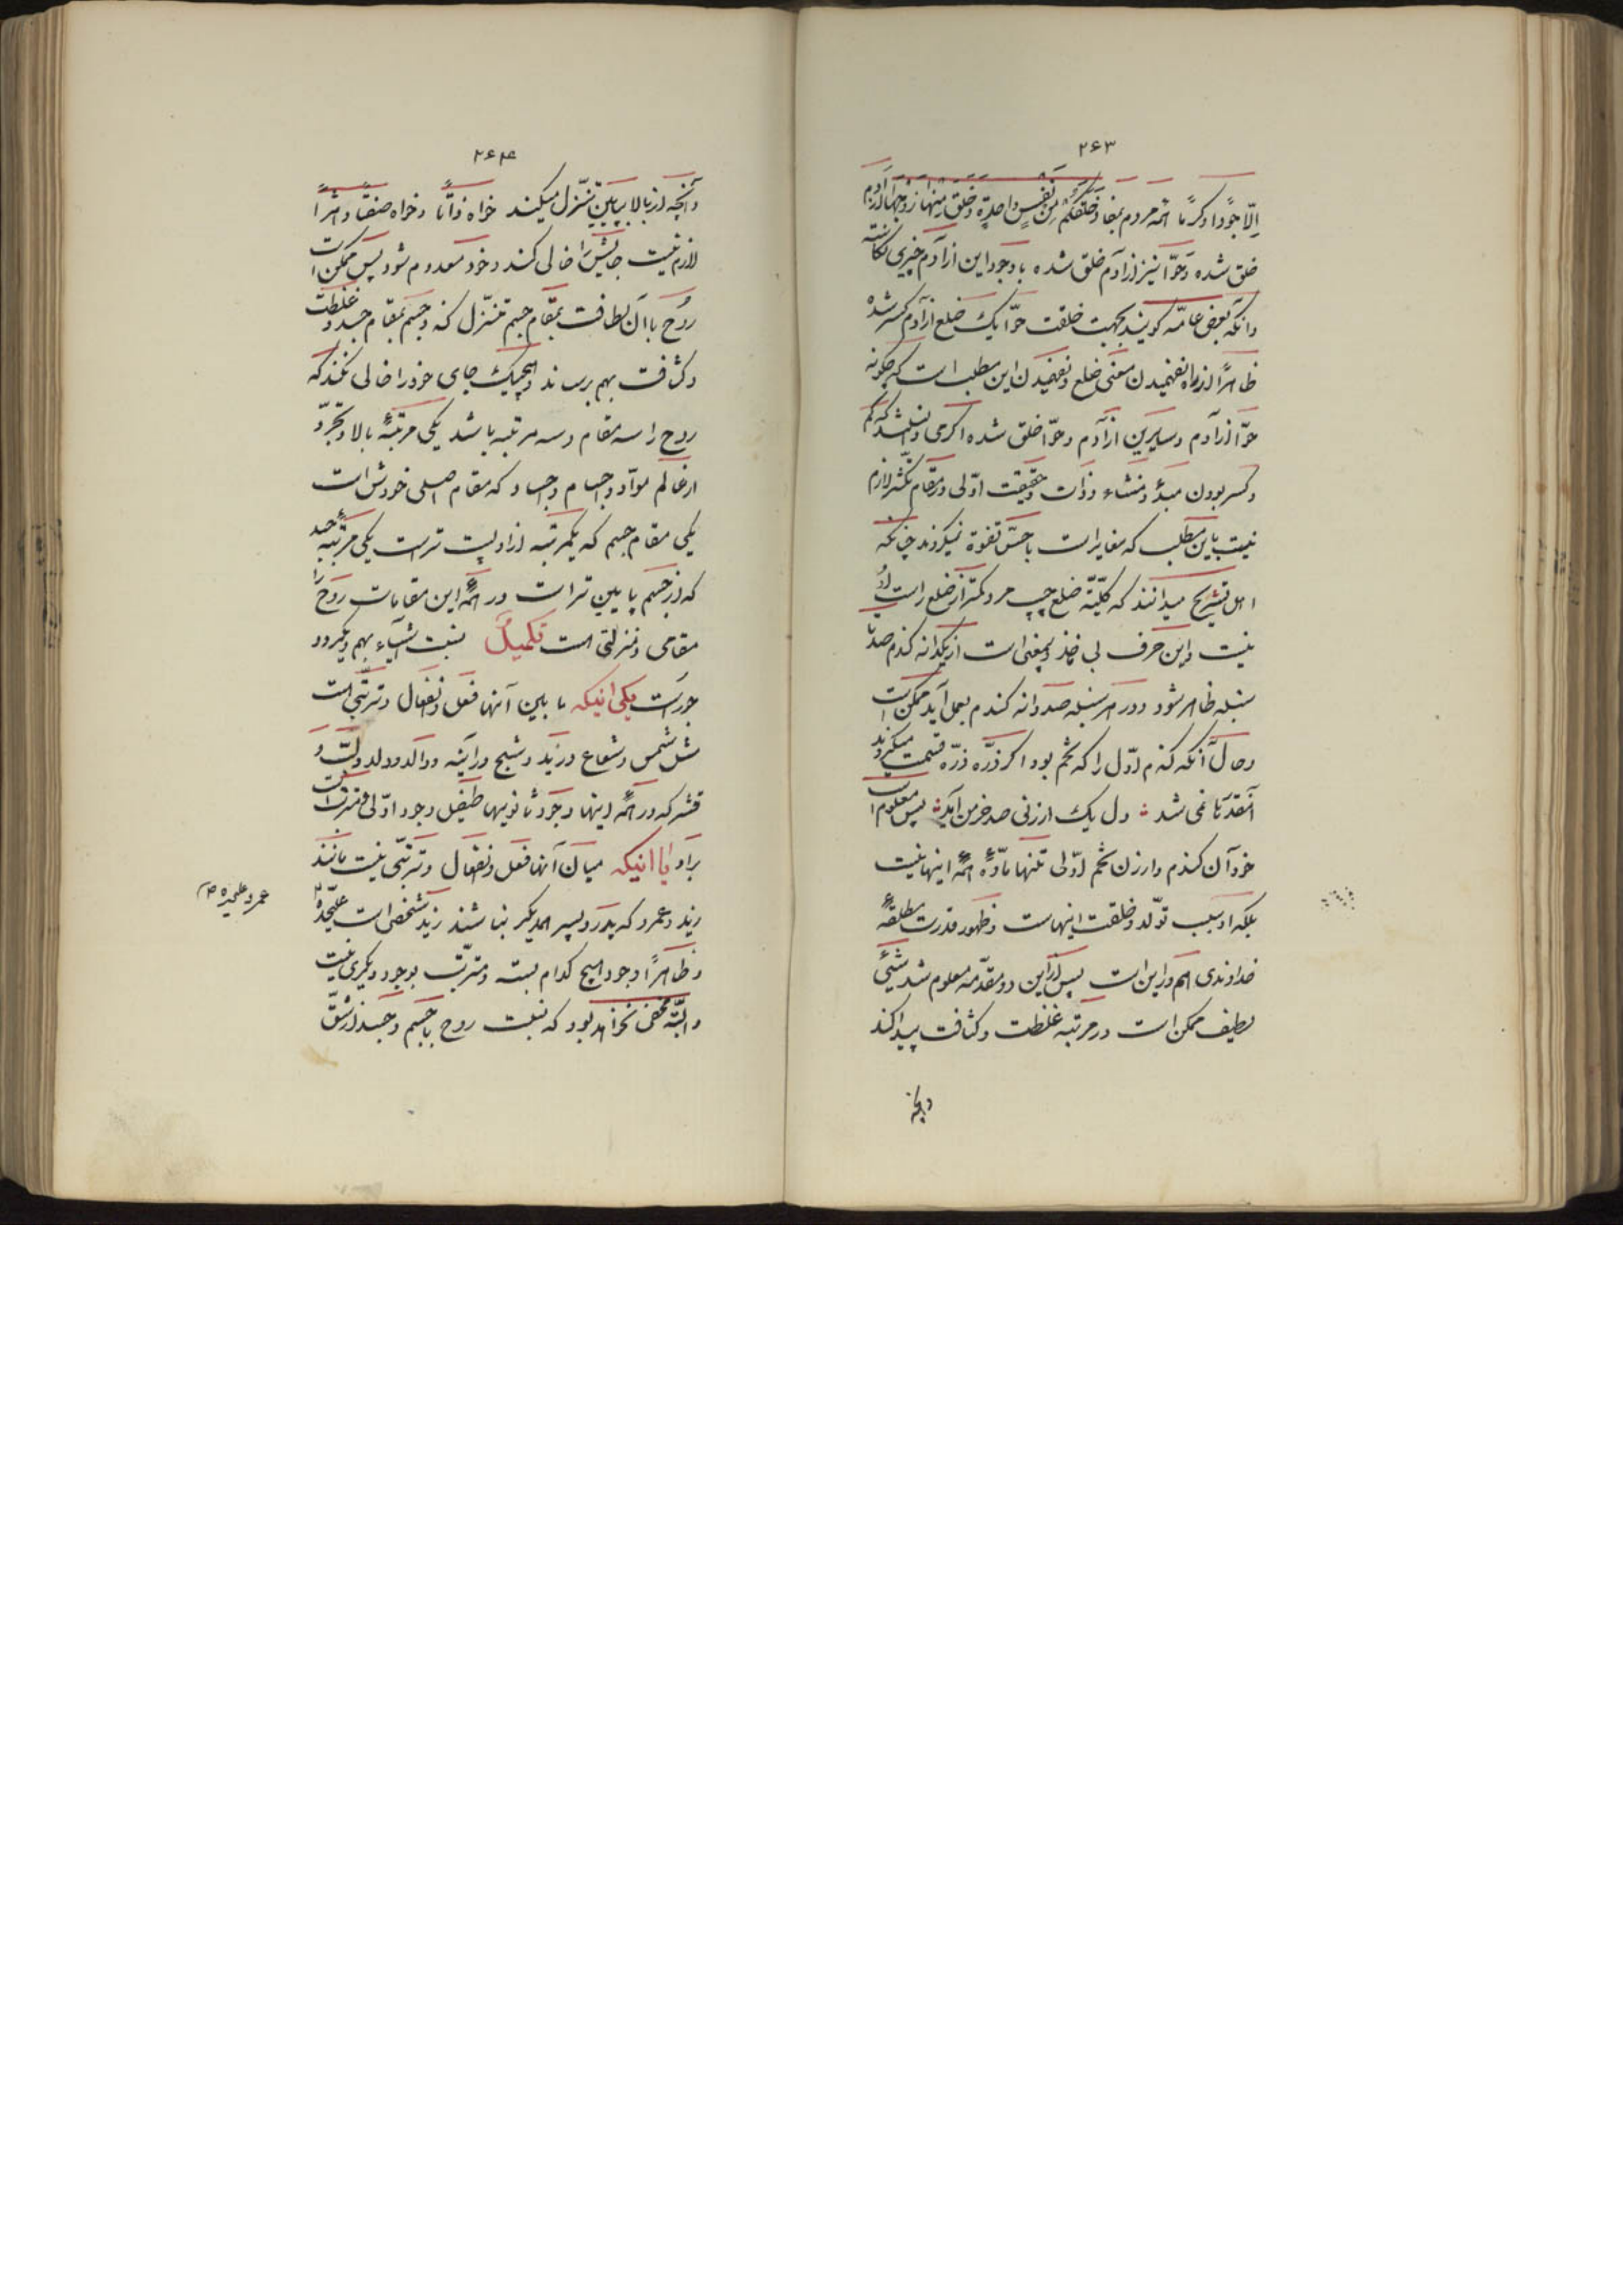 ۲۶۳
إلّا جوداً وكرماً همه مردم بمفاد خلقكم من نفس واحدة وخلق منها زوجها از آدم
خلق شده و حوّا نیز از آدم خلق شده با وجود این از آدم چیزی نکاسته
و انکه بعض عامّه کویند بجهت خلقت حوّا یک ضلع از آدم کسر شده
ظاهراً از راه نفهمیدن معنی ضلع و نفهمیدن این مطلب است که چکونه
حوّا از آدم و سایرین از آدم و حوّا خلق شده اکرمی
و کسر بودن مبدء و منشاء و ذات و حقیقت اوّلی در مقام تکثر لازم
نیست باین مطلب که مغایر است با حسّ تفوه نمیکردند چنانکه
اهل تشریح میدانند که کلیّة ضلع چپ مرد کمتر از ضلع راست او
نیست و این حرف بی ماخذ و بیمعنی است از یکدانه کندم صد تا
سنبله ظاهر شود و در هر سنبله صد دانه کندم بعمل آید ممکن است
و حال آنکه کندم اوّل را که تخم بود اکر ذرّه ذرّه قسمت میکردند
آنقدرتا نمی شد : دل یک ارزنی صد خرمن آمد : پس معلوم است
خود آن کندم و ارزن تخم اوّلی تنها مادّه همه اینها نیست
بلکه او سبب تولّد و خلقت اینهاست و ظهور قدرت مطلقه
خداوندی هم در این است پس از این دو مقدّمه معلوم شد شیئی
لطیف ممکن است در مرتبه غلظت و کثافت پیدا کند
و آنچه
۲۶۴
و آنچه از بالا بپایین تنزّل میکند خواه ذاتاً و خواه صفتاً و اثراً
لازم نیست جایش را خالی کند و خود معدوم شود پس ممکن است
روح با آن لطافت بمقام جسم تنزّل کند و جسم بمقام جسد و غلظت
و کثافت بهم برساند و هیچیک جای خود را خالی نکند که
روح را سه مقام و سه مرتبه باشد یکی مرتبهٔ بالا و تجرّد
از عالم موادّ و اجسام و اجساد که مقام اصلی خودش است
یکی مقام جسم که یکمرتبه از او پست تر است یکی مرتبهٔ جسد
که از جسم پایین تر است در همه این مقامات روح را
مقامی و منزلتی است تکمیل نسبت اشیاء بهم دیکر دو
جور است یکی اینکه ما بین آنها فعل و انفعال و ترتّبی است
مثل شمس و شعاع و زید و شبح در آینه و والد و ولد و لبّ و
قشر که در همه اینها وجود ثانویها طفیل وجود اوّلی و مترتب است
براو یا اینکه میان آنها فعل و انفعال و ترتّبی نیست مانند
زید و عمرو که پدر و پسر همدیکر نباشند زید شخصی است علیحدّه
و ظاهراً وجود هیچ کدام بسته و مترتّب بوجود دیکری نیست
و البتّه مخفی نخواهد بود که نسبت روح با جسم و جسد از شقّ
عمرو علیحده